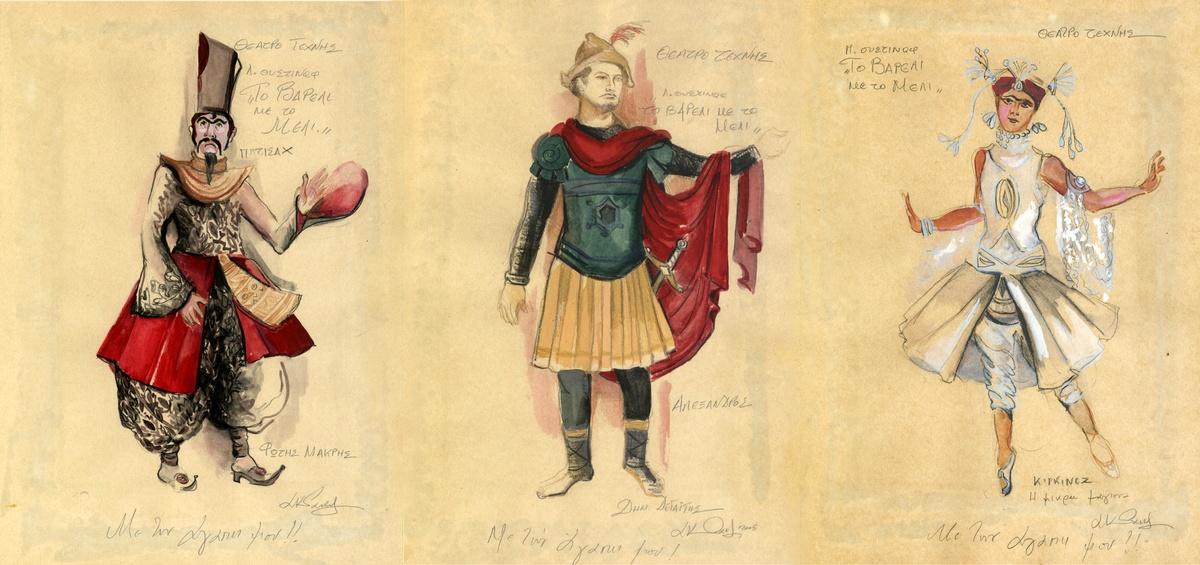 ΘΕΑΤΡΟ ΤΕΧΝΗΣ
Λ. ΟΥΣΤΙΝΩΦ
"ΤΟ ΒΑΡΕΛΙ
ΜΕ ΤΟ
ΜΕΛΙ."
ΠΑΤΙΣΑΧ
ΦΩΤΗΣ ΜΑΚΡΗΣ
Με την αγάπη μου!!
ΘΕΑΤΡΟ ΤΕΧΝΗΣ
Λ. ΟΥΣΤΙΝΩΦ
"ΤΟ ΒΑΡΕΛΙ ΜΕ ΤΟ
ΜΕΛΙ"
ΑΛΕΞΑΝΔΡΟΣ
Με την αγάπη μου!
ΘΕΑΤΡΟ ΤΕΧΝΗΣ
Λ. ΟΥΣΤΙΝΩΦ
"ΤΟ ΒΑΡΕΛΙ
ΜΕ ΤΟ ΜΕΛΙ"
ΚΙΡΚΙΝΕΖ
Η μικρή μάγισσα
Με την αγάπη μου!!